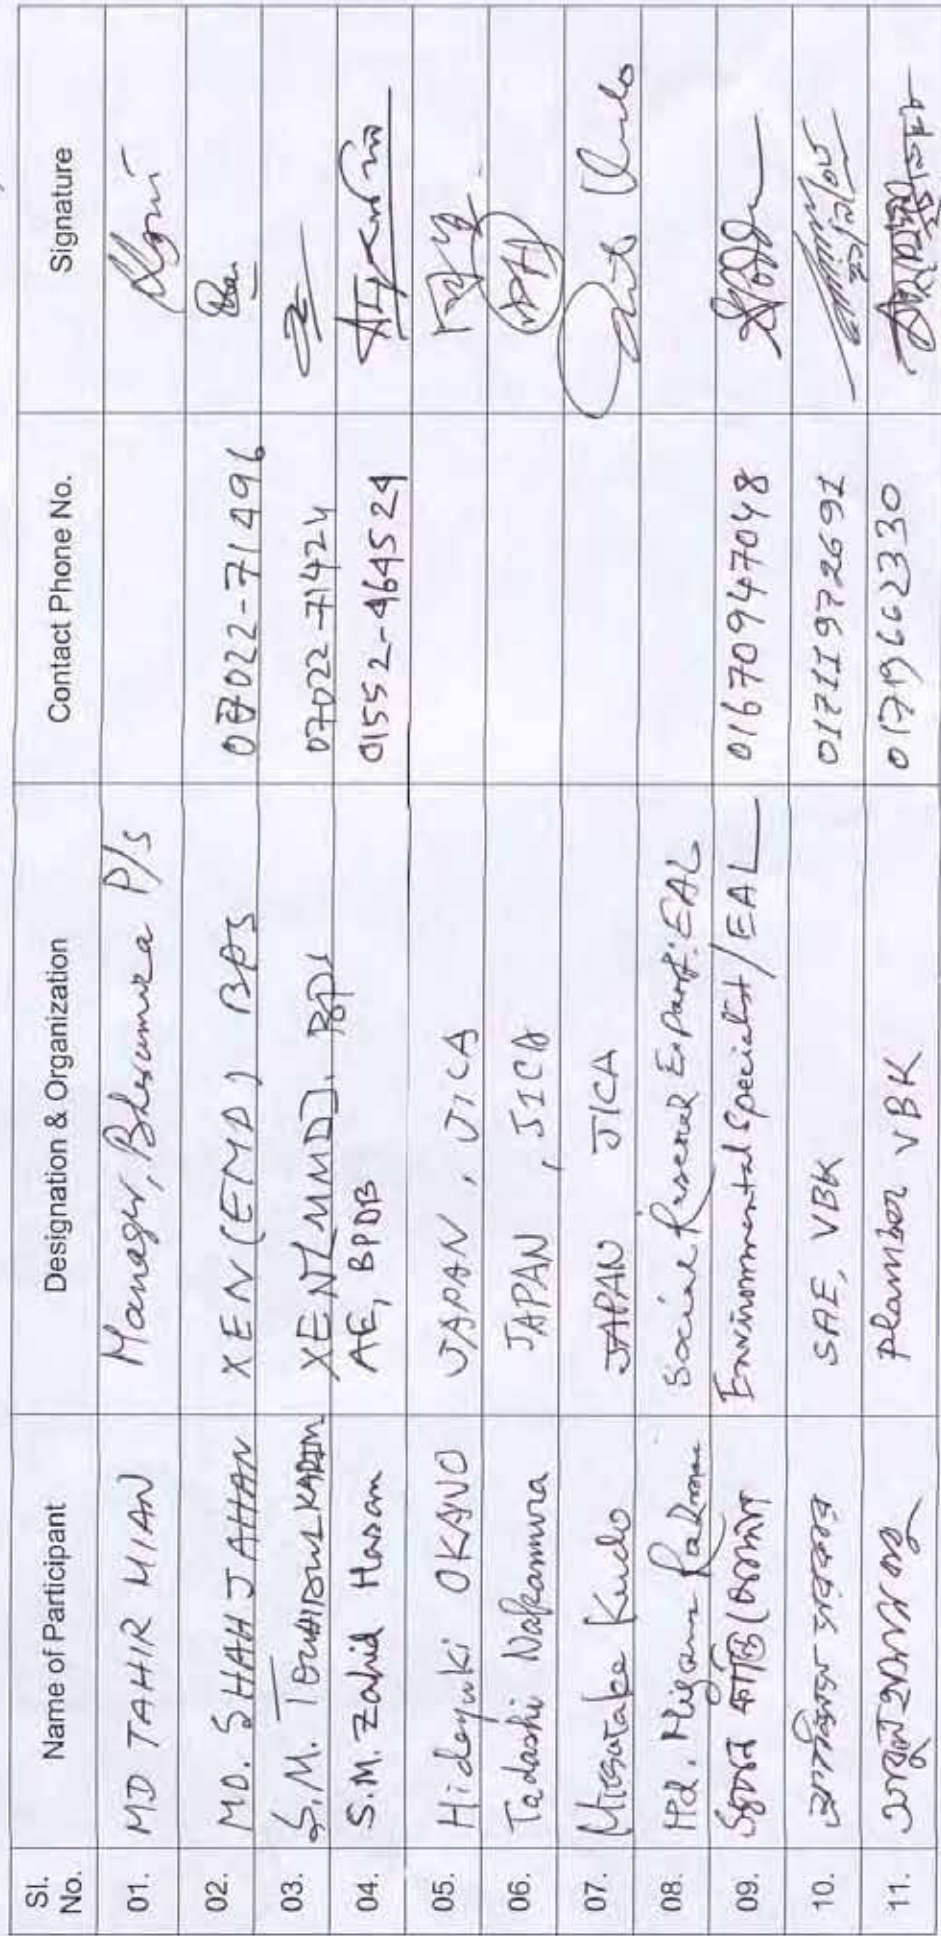 Sl. No. Name of Participant Designation & Organization Contact Phone No. Signature
01. MD TAHIR MIAN Manager, Bheramara P/S
02. MD. SHAHJAHAN XEN (EMD) BPS 07022-71496
03. S.M. TOUHIDUL KARIM XEN (MMD), BPS 07022-71424
04. S.M. Zahid Hasan AE, BPDB 01552-464524
05. Hideyuki OKANO JAPAN, JICA
06. Tadashi Nakamura JAPAN, JICA
07. Masatake Kudo JAPAN JICA
08. Md. Mizanur Rahman Social Research Expart: EAL
09. Environmental Specialist/EAL 01670947048
10. সরকার SAE, VBK 01711972691
11. Plambor VBK 01719662330